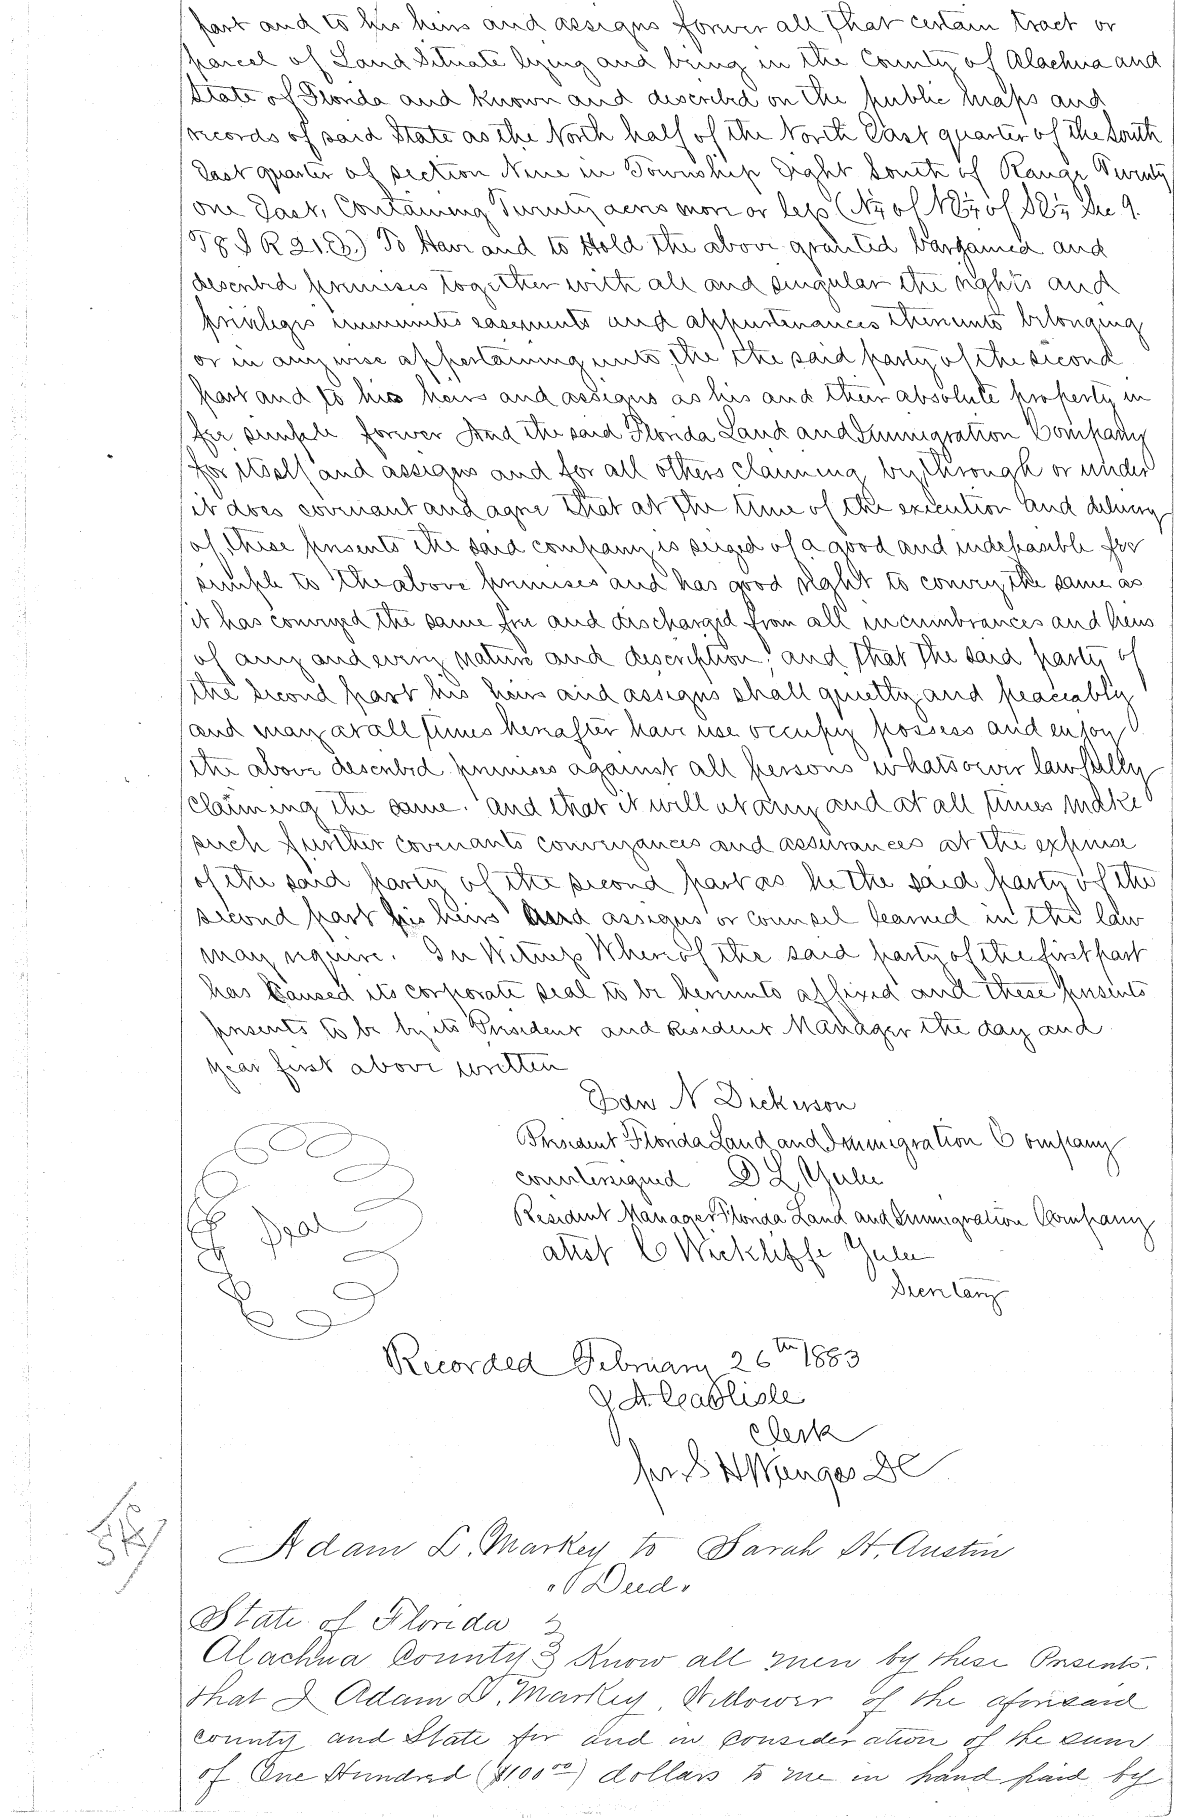 part and to his heirs and assigns forever all that certain tract or
parcel of Land Situate lying and being in the County of Alachua and
State of Florida and known and described on the public maps and
records of said State as the North half of the North East quarter of the South
East quarter of section Nine in Township Eight South of Range Twenty
one East, Containing Twenty acres more or less (N½ of NE¼ of SE¼ Sec 9.
T8 S R 21.E.) To Have and to Hold the above granted bargained and
described premises together with all and singular the rights and
privileges immunities easements and appurtenances thereunto belonging
or in any wise appertaining unto the the said party of the second
part and to his heirs and assigns as his and their absolute property in
fee simple forever And the said Florida Land and Immigration Company
for itself and assigns and for all others claiming by through or under
it does covenant and agree that at the time of the execution and delivery
of these presents the said company is seized of a good and indefeasible fee
simple to the above premises and has good right to convey the same as
it has conveyed the same free and discharged from all incumbrances and liens
of any and every nature and description; and that the said party of
the second part his heirs and assigns shall quietly and peaceably
and may at all times hereafter have use occupy possess and enjoy
the above described premises against all persons whatsoever lawfully
claiming the same. And that it will at any and at all times make
such further covenants conveyances and assurances at the expense
of the said party of the second part as he the said party of the
second part his heirs and assigns or counsel learned in the law
may require. In Witness Whereof the said party of the first part
has caused its corporate seal to be hereunto affixed and these presents
presents to be by its President and Resident Manager the day and
year first above written
Dan N Dickerson
President Florida Land and Immigration Company
countersigned D L Yulee
Resident Manager Florida Land and Immigration Company
attest C Wickliffe Yulee
Secretary
Seal
Recorded February 26th 1883
J A Carlisle
Clerk
per S H Wienges DC
Adam L. Markey to Sarah H. Austin
"Deed"
State of Florida }
Alachua County } Know all men by these Presents.
that I Adam L. Markey, Widower of the aforesaid
county and State for and in consideration of the sum
of One Hundred ($100 00) dollars to me in hand paid by